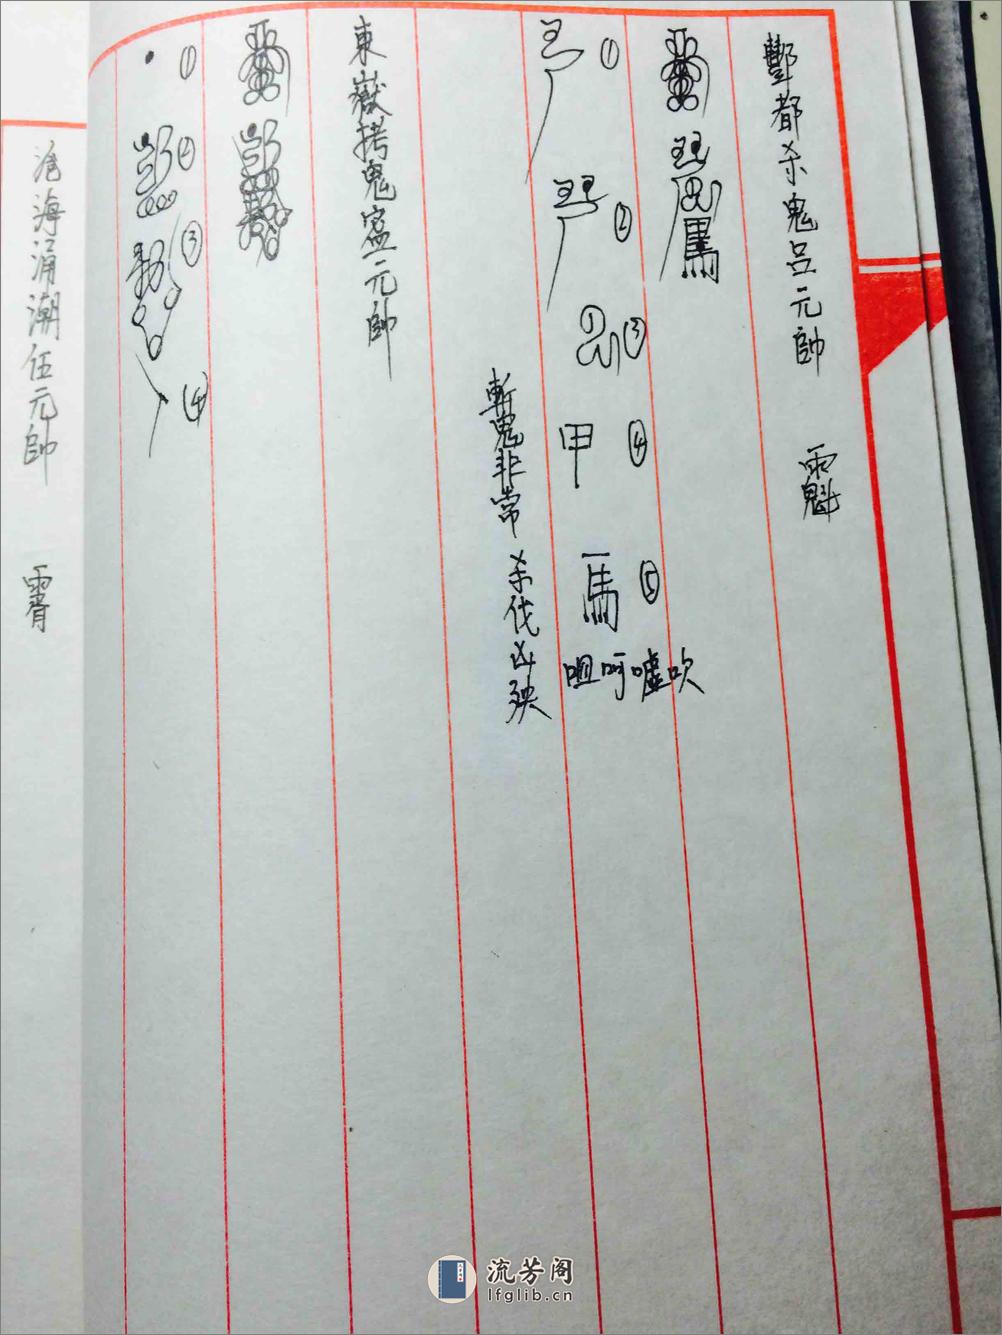 酆都杀鬼呂元帥
①
②
③
甲 ④
馬 ⑤
咀呵嘘吹
斬鬼非常 杀伐凶殃
東嶽拷鬼寍元帥
①
②
③
④
滄海涌潮伍元帥
流芳阁
lfglib.cn